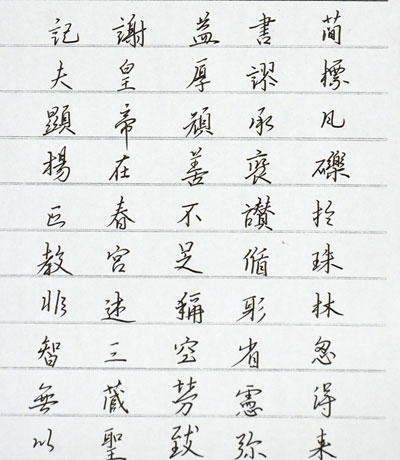 簡標瓦礫於珠林忽得来
書謬承褒讚循躬省慮弥
益厚顏善不足稱空勞致
謝皇帝在春宮述三藏聖
記夫顯揚正教非智無以